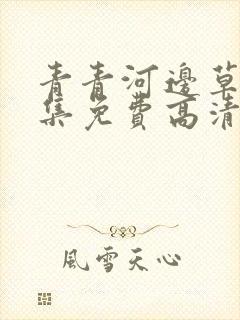 青青河邊草
集免費高清
風雪天心